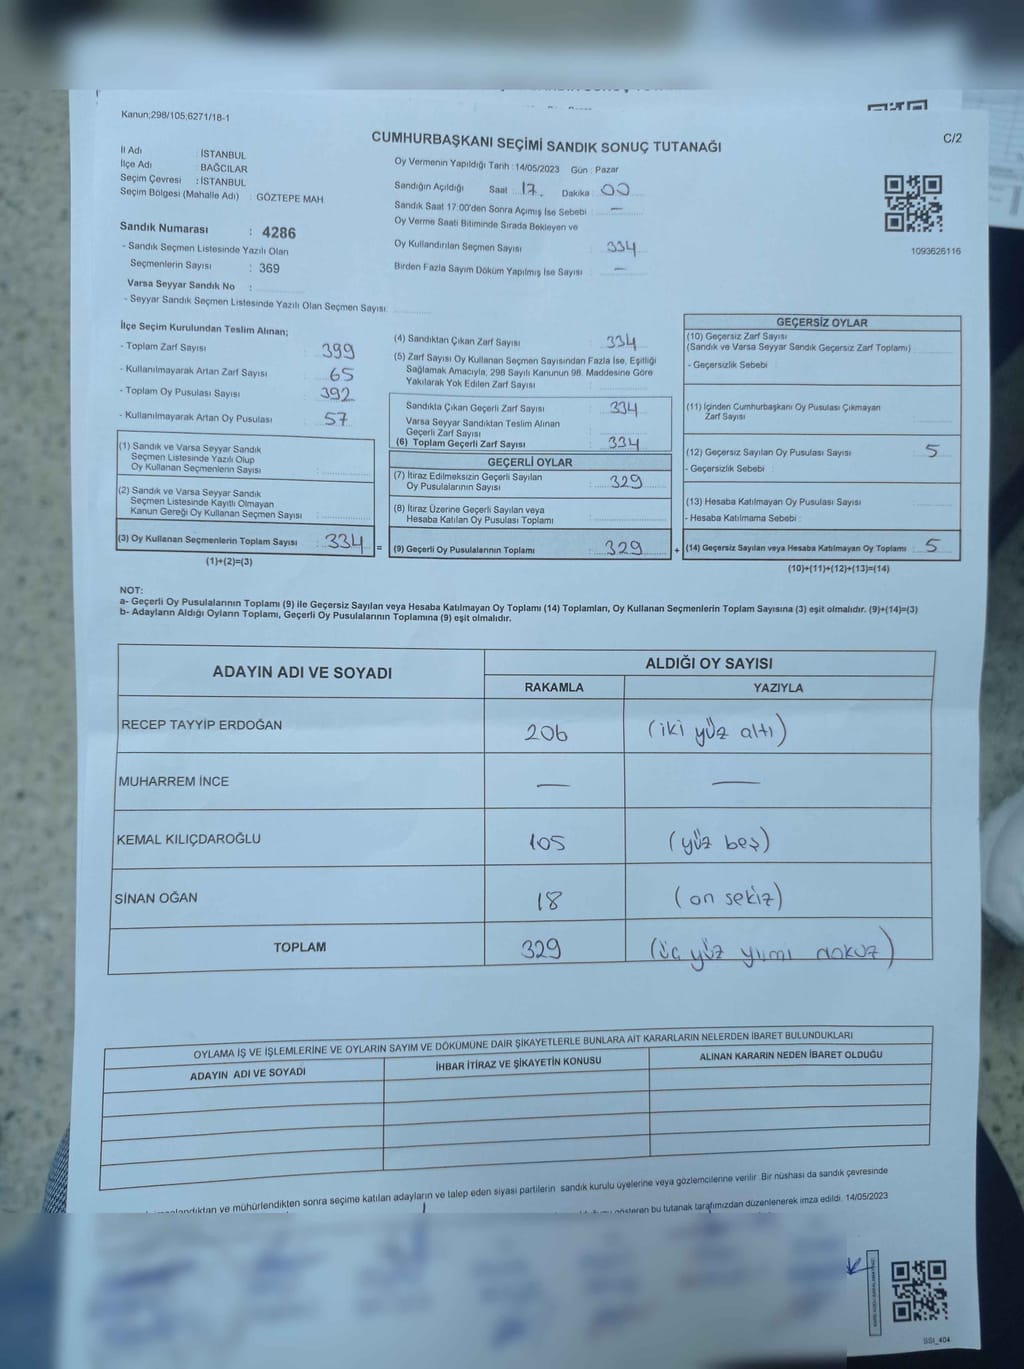 Kanun;298/105,6271/18-1
C/2
CUMHURBAŞKANI SEÇİMİ SANDIK SONUÇ TUTANAĞI
İl Adı : İSTANBUL
İlçe Adı : BAĞCILAR
Seçim Çevresi : İSTANBUL
Seçim Bölgesi (Mahalle Adı) : GÖZTEPE MAH
Oy Vermenin Yapıldığı Tarih : 14/05/2023 Gün : Pazar
Sandığın Açıldığı Saat : 17. Dakika : 00
Sandık Saat 17:00'den Sonra Açımış İse Sebebi : —
Oy Verme Saati Bitiminde Sırada Bekleyen ve
Oy Kullandırılan Seçmen Sayısı : 334
Birden Fazla Sayım Döküm Yapılmış İse Sayısı : —
1093626116
Sandık Numarası : 4286
- Sandık Seçmen Listesinde Yazılı Olan
Seçmenlerin Sayısı : 369
Varsa Seyyar Sandık No :
- Seyyar Sandık Seçmen Listesinde Yazılı Olan Seçmen Sayısı:
İlçe Seçim Kurulundan Teslim Alınan;
- Toplam Zarf Sayısı 399
- Kullanılmayarak Artan Zarf Sayısı 65
- Toplam Oy Pusulası Sayısı 392
- Kullanılmayarak Artan Oy Pusulası 57
(1) Sandık ve Varsa Seyyar Sandık
Seçmen Listesinde Yazılı Olup
Oy Kullanan Seçmenlerin Sayısı :
(2) Sandık ve Varsa Seyyar Sandık
Seçmen Listesinde Kayıtlı Olmayan
Kanun Gereği Oy Kullanan Seçmen Sayısı :
(3) Oy Kullanan Seçmenlerin Toplam Sayısı : 334 =
(1)+(2)=(3)
(4) Sandıktan Çıkan Zarf Sayısı : 334
(5) Zarf Sayısı Oy Kullanan Seçmen Sayısından Fazla İse, Eşitliği
Sağlamak Amacıyla, 298 Sayılı Kanunun 98. Maddesine Göre
Yakılarak Yok Edilen Zarf Sayısı :
Sandıkta Çıkan Geçerli Zarf Sayısı : 334
Varsa Seyyar Sandıktan Teslim Alınan
Geçerli Zarf Sayısı :
(6) Toplam Geçerli Zarf Sayısı : 334
GEÇERLİ OYLAR
(7) İtiraz Edilmeksizin Geçerli Sayılan
Oy Pusulalarının Sayısı : 329
(8) İtiraz Üzerine Geçerli Sayılan veya
Hesaba Katılan Oy Pusulası Toplamı :
(9) Geçerli Oy Pusulalarının Toplamı : 329 +
GEÇERSİZ OYLAR
(10) Geçersiz Zarf Sayısı
(Sandık ve Varsa Seyyar Sandık Geçersiz Zarf Toplamı) :
- Geçersizlik Sebebi :
(11) İçinden Cumhurbaşkanı Oy Pusulası Çıkmayan
Zarf Sayısı :
(12) Geçersiz Sayılan Oy Pusulası Sayısı : 5
- Geçersizlik Sebebi :
(13) Hesaba Katılmayan Oy Pusulası Sayısı :
- Hesaba Katılmama Sebebi :
(14) Geçersiz Sayılan veya Hesaba Katılmayan Oy Toplamı : 5
(10)+(11)+(12)+(13)=(14)
NOT:
a- Geçerli Oy Pusulalarının Toplamı (9) ile Geçersiz Sayılan veya Hesaba Katılmayan Oy Toplamı (14) Toplamları, Oy Kullanan Seçmenlerin Toplam Sayısına (3) eşit olmalıdır. (9)+(14)=(3)
b- Adayların Aldığı Oyların Toplamı, Geçerli Oy Pusulalarının Toplamına (9) eşit olmalıdır.
ADAYIN ADI VE SOYADI
ALDIĞI OY SAYISI
RAKAMLA YAZIYLA
RECEP TAYYİP ERDOĞAN 206 (iki yüz altı)
MUHARREM İNCE — —
KEMAL KILIÇDAROĞLU 105 (yüz beş)
SİNAN OĞAN 18 (on sekiz)
TOPLAM 329 (üç yüz yirmi dokuz)
OYLAMA İŞ VE İŞLEMLERİNE VE OYLARIN SAYIM VE DÖKÜMÜNE DAİR ŞİKAYETLERLE BUNLARA AİT KARARLARIN NELERDEN İBARET BULUNDUKLARI
ADAYIN ADI VE SOYADI İHBAR İTİRAZ VE ŞİKAYETİN KONUSU ALINAN KARARIN NEDEN İBARET OLDUĞU
ve mühürlendikten sonra seçime katılan adayların ve talep eden siyasi partilerin sandık kurulu üyelerine veya gözlemcilerine verilir. Bir nüshası da sandık çevresinde
gösteren bu tutanak tarafımızdan düzenlenerek imza edildi. 14/05/2023
SSt_404